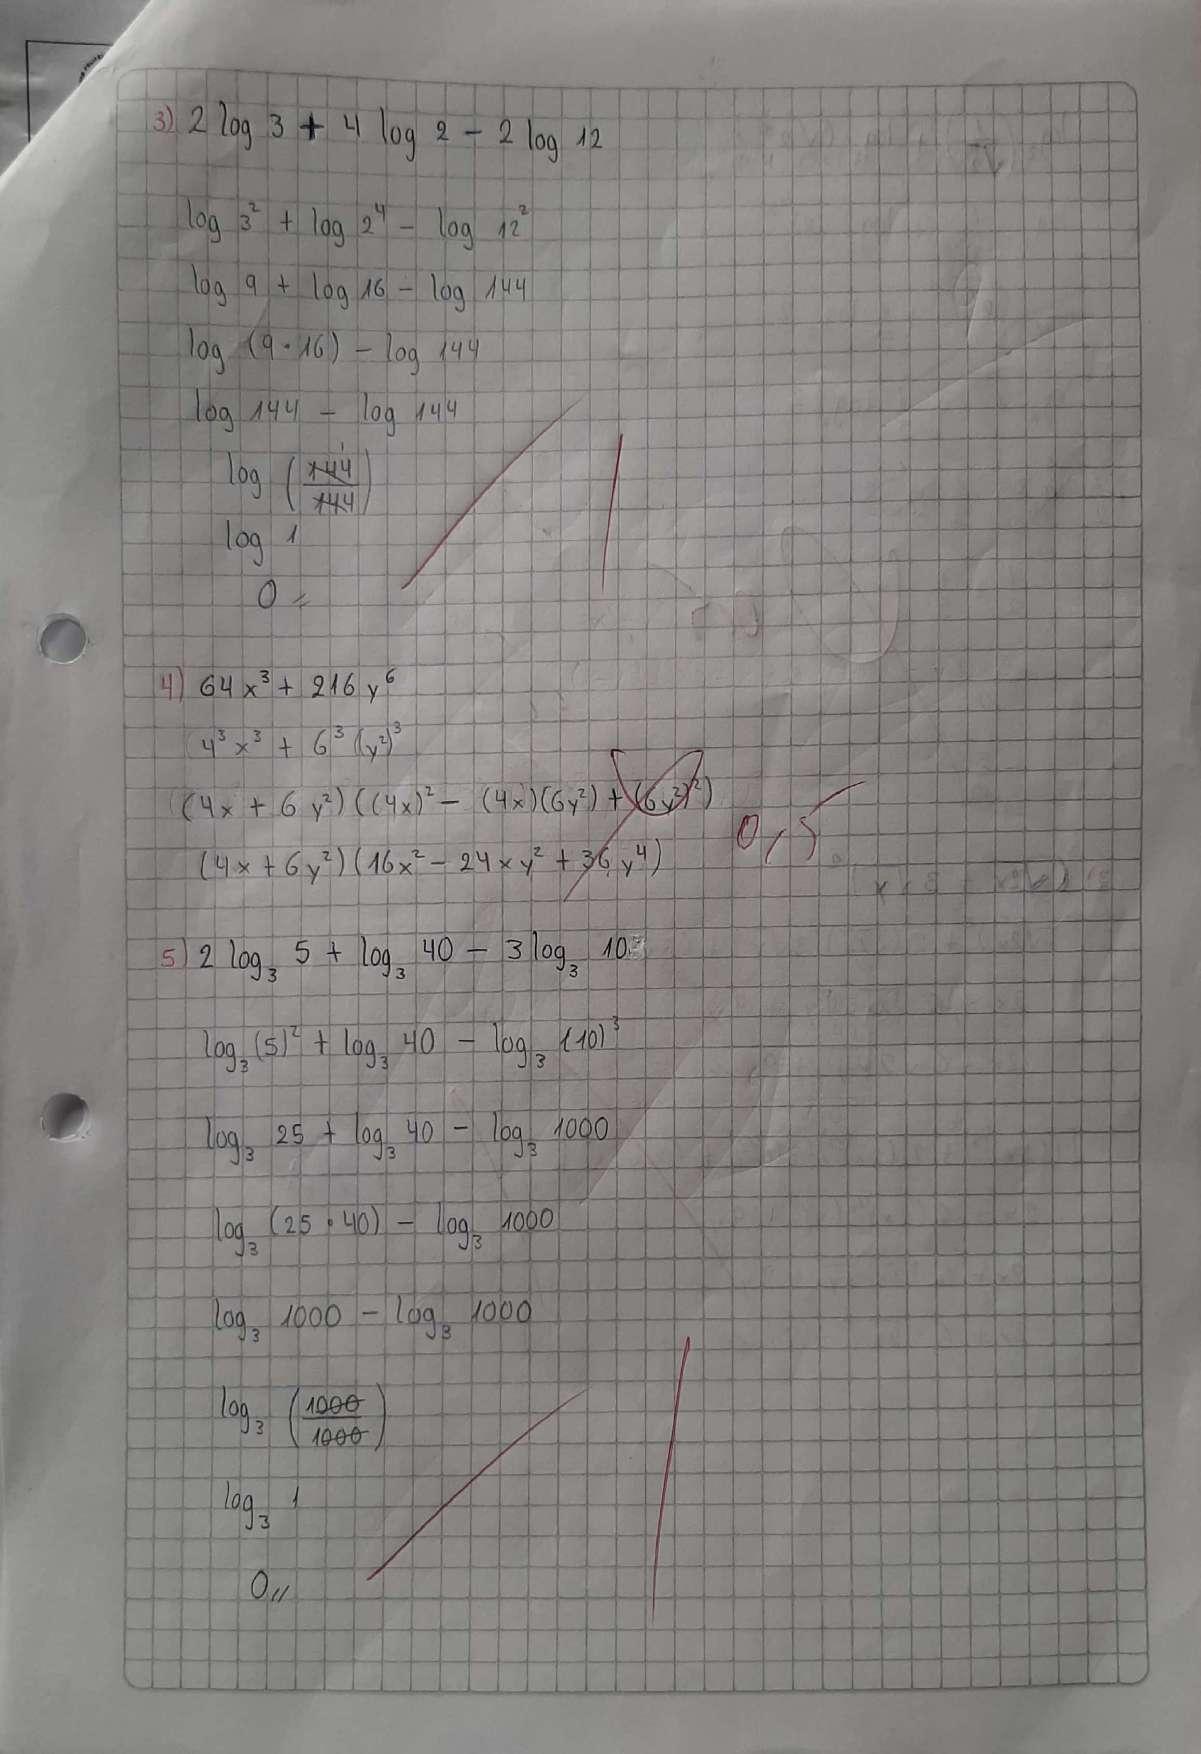 3) 2 log 3 + 4 log 2 - 2 log 12
log 3² + log 2⁴ - log 12²
log 9 + log 16 - log 144
log (9 · 16) - log 144
log 144 - log 144
log (144/144) 1
log 1
0
1
4) 64x³ + 216y⁶
4³x³ + 6³(y²)³
(4x + 6y²)((4x)² - (4x)(6y²) + (6y²)²)
0,5
(4x + 6y²)(16x² - 24xy² + 36y⁴)
5) 2 log₃ 5 + log₃ 40 - 3 log₃ 10
log₃ (5)² + log₃ 40 - log₃ (10)³
log₃ 25 + log₃ 40 - log₃ 1000
log₃ (25 · 40) - log₃ 1000
log₃ 1000 - log₃ 1000
log₃ (1000/1000)
log₃ 1
0
1